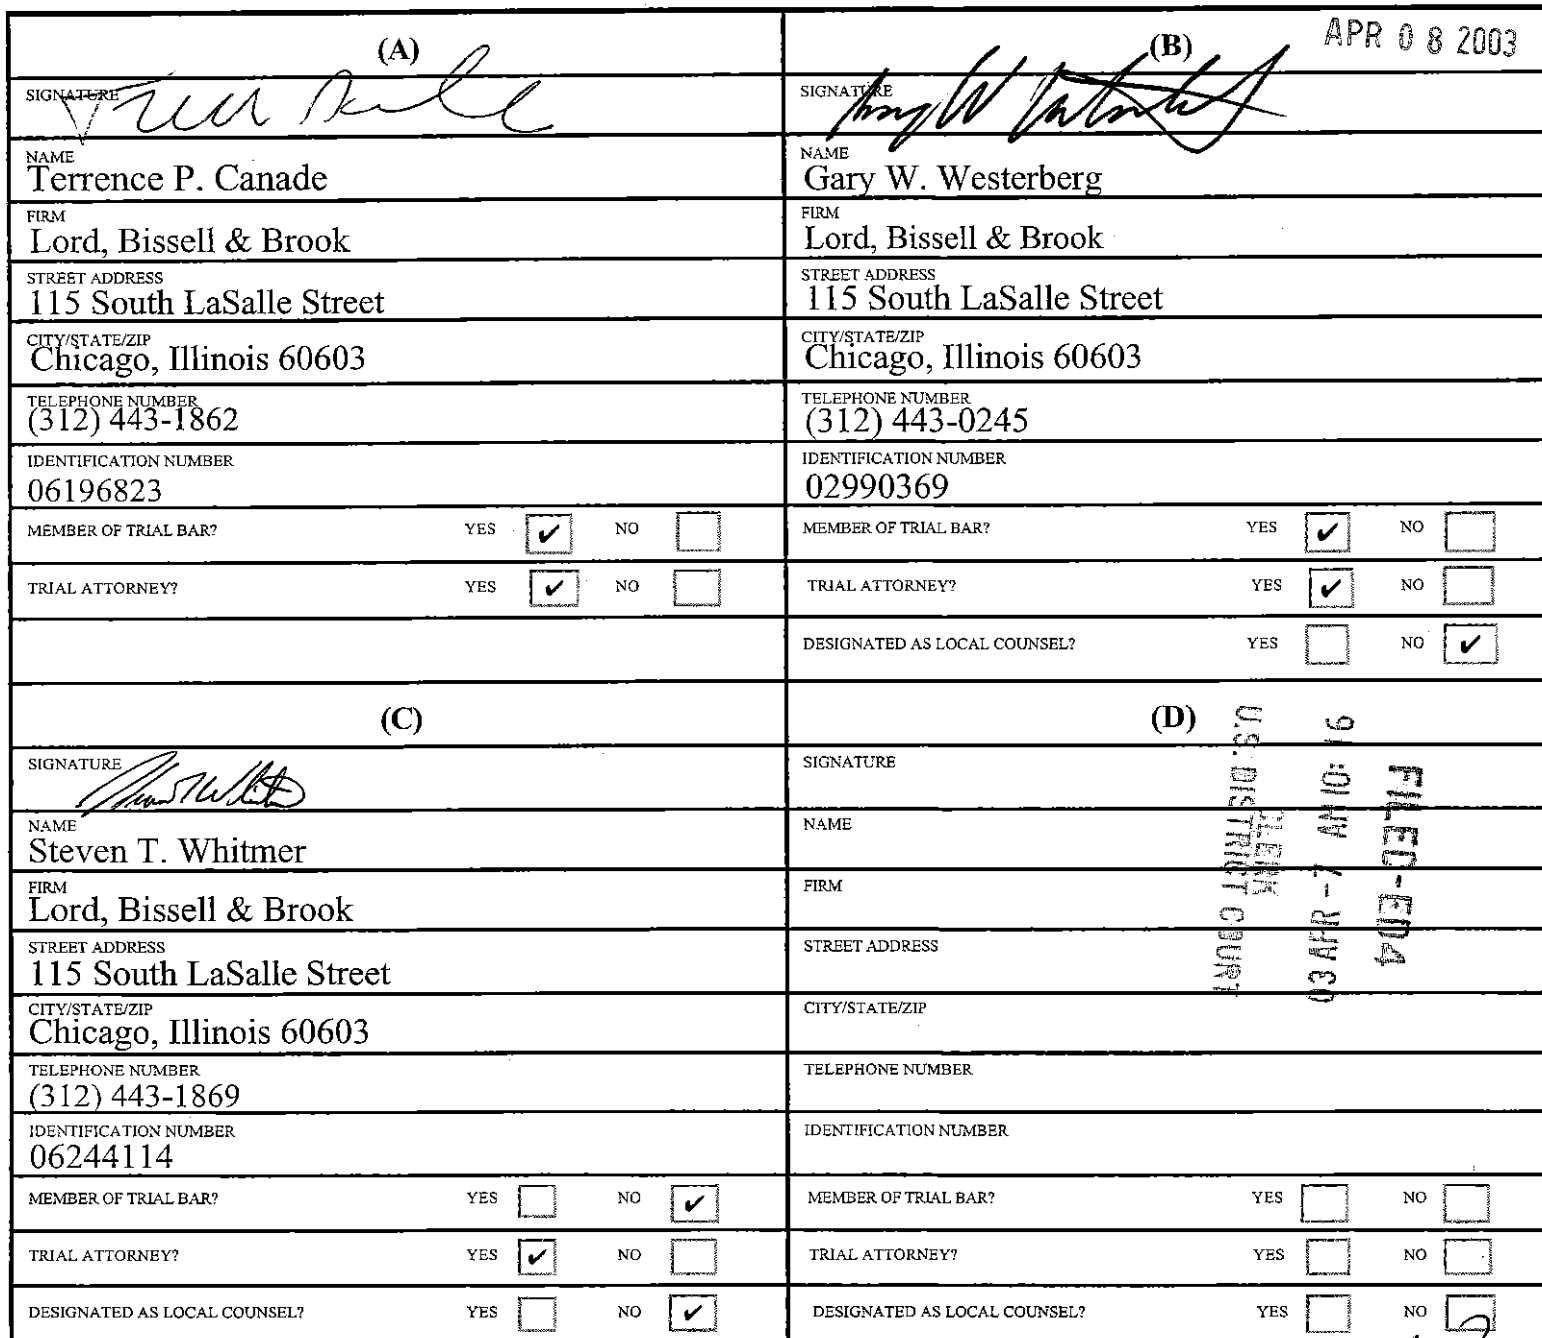 APR 08 2003
(A)
SIGNATURE
NAME
Terrence P. Canade
FIRM
Lord, Bissell & Brook
STREET ADDRESS
115 South LaSalle Street
CITY/STATE/ZIP
Chicago, Illinois 60603
TELEPHONE NUMBER
(312) 443-1862
IDENTIFICATION NUMBER
06196823
MEMBER OF TRIAL BAR? YES ✔ NO
TRIAL ATTORNEY? YES ✔ NO
(B)
SIGNATURE
NAME
Gary W. Westerberg
FIRM
Lord, Bissell & Brook
STREET ADDRESS
115 South LaSalle Street
CITY/STATE/ZIP
Chicago, Illinois 60603
TELEPHONE NUMBER
(312) 443-0245
IDENTIFICATION NUMBER
02990369
MEMBER OF TRIAL BAR? YES ✔ NO
TRIAL ATTORNEY? YES ✔ NO
DESIGNATED AS LOCAL COUNSEL? YES NO ✔
(C)
SIGNATURE
NAME
Steven T. Whitmer
FIRM
Lord, Bissell & Brook
STREET ADDRESS
115 South LaSalle Street
CITY/STATE/ZIP
Chicago, Illinois 60603
TELEPHONE NUMBER
(312) 443-1869
IDENTIFICATION NUMBER
06244114
MEMBER OF TRIAL BAR? YES NO ✔
TRIAL ATTORNEY? YES ✔ NO
DESIGNATED AS LOCAL COUNSEL? YES NO ✔
(D)
SIGNATURE
NAME
FIRM
STREET ADDRESS
CITY/STATE/ZIP
TELEPHONE NUMBER
IDENTIFICATION NUMBER
MEMBER OF TRIAL BAR? YES NO
TRIAL ATTORNEY? YES NO
DESIGNATED AS LOCAL COUNSEL? YES NO
FILED-ED4
03 APR -7 AM 10: 16
CLERK
U.S. DISTRICT COURT